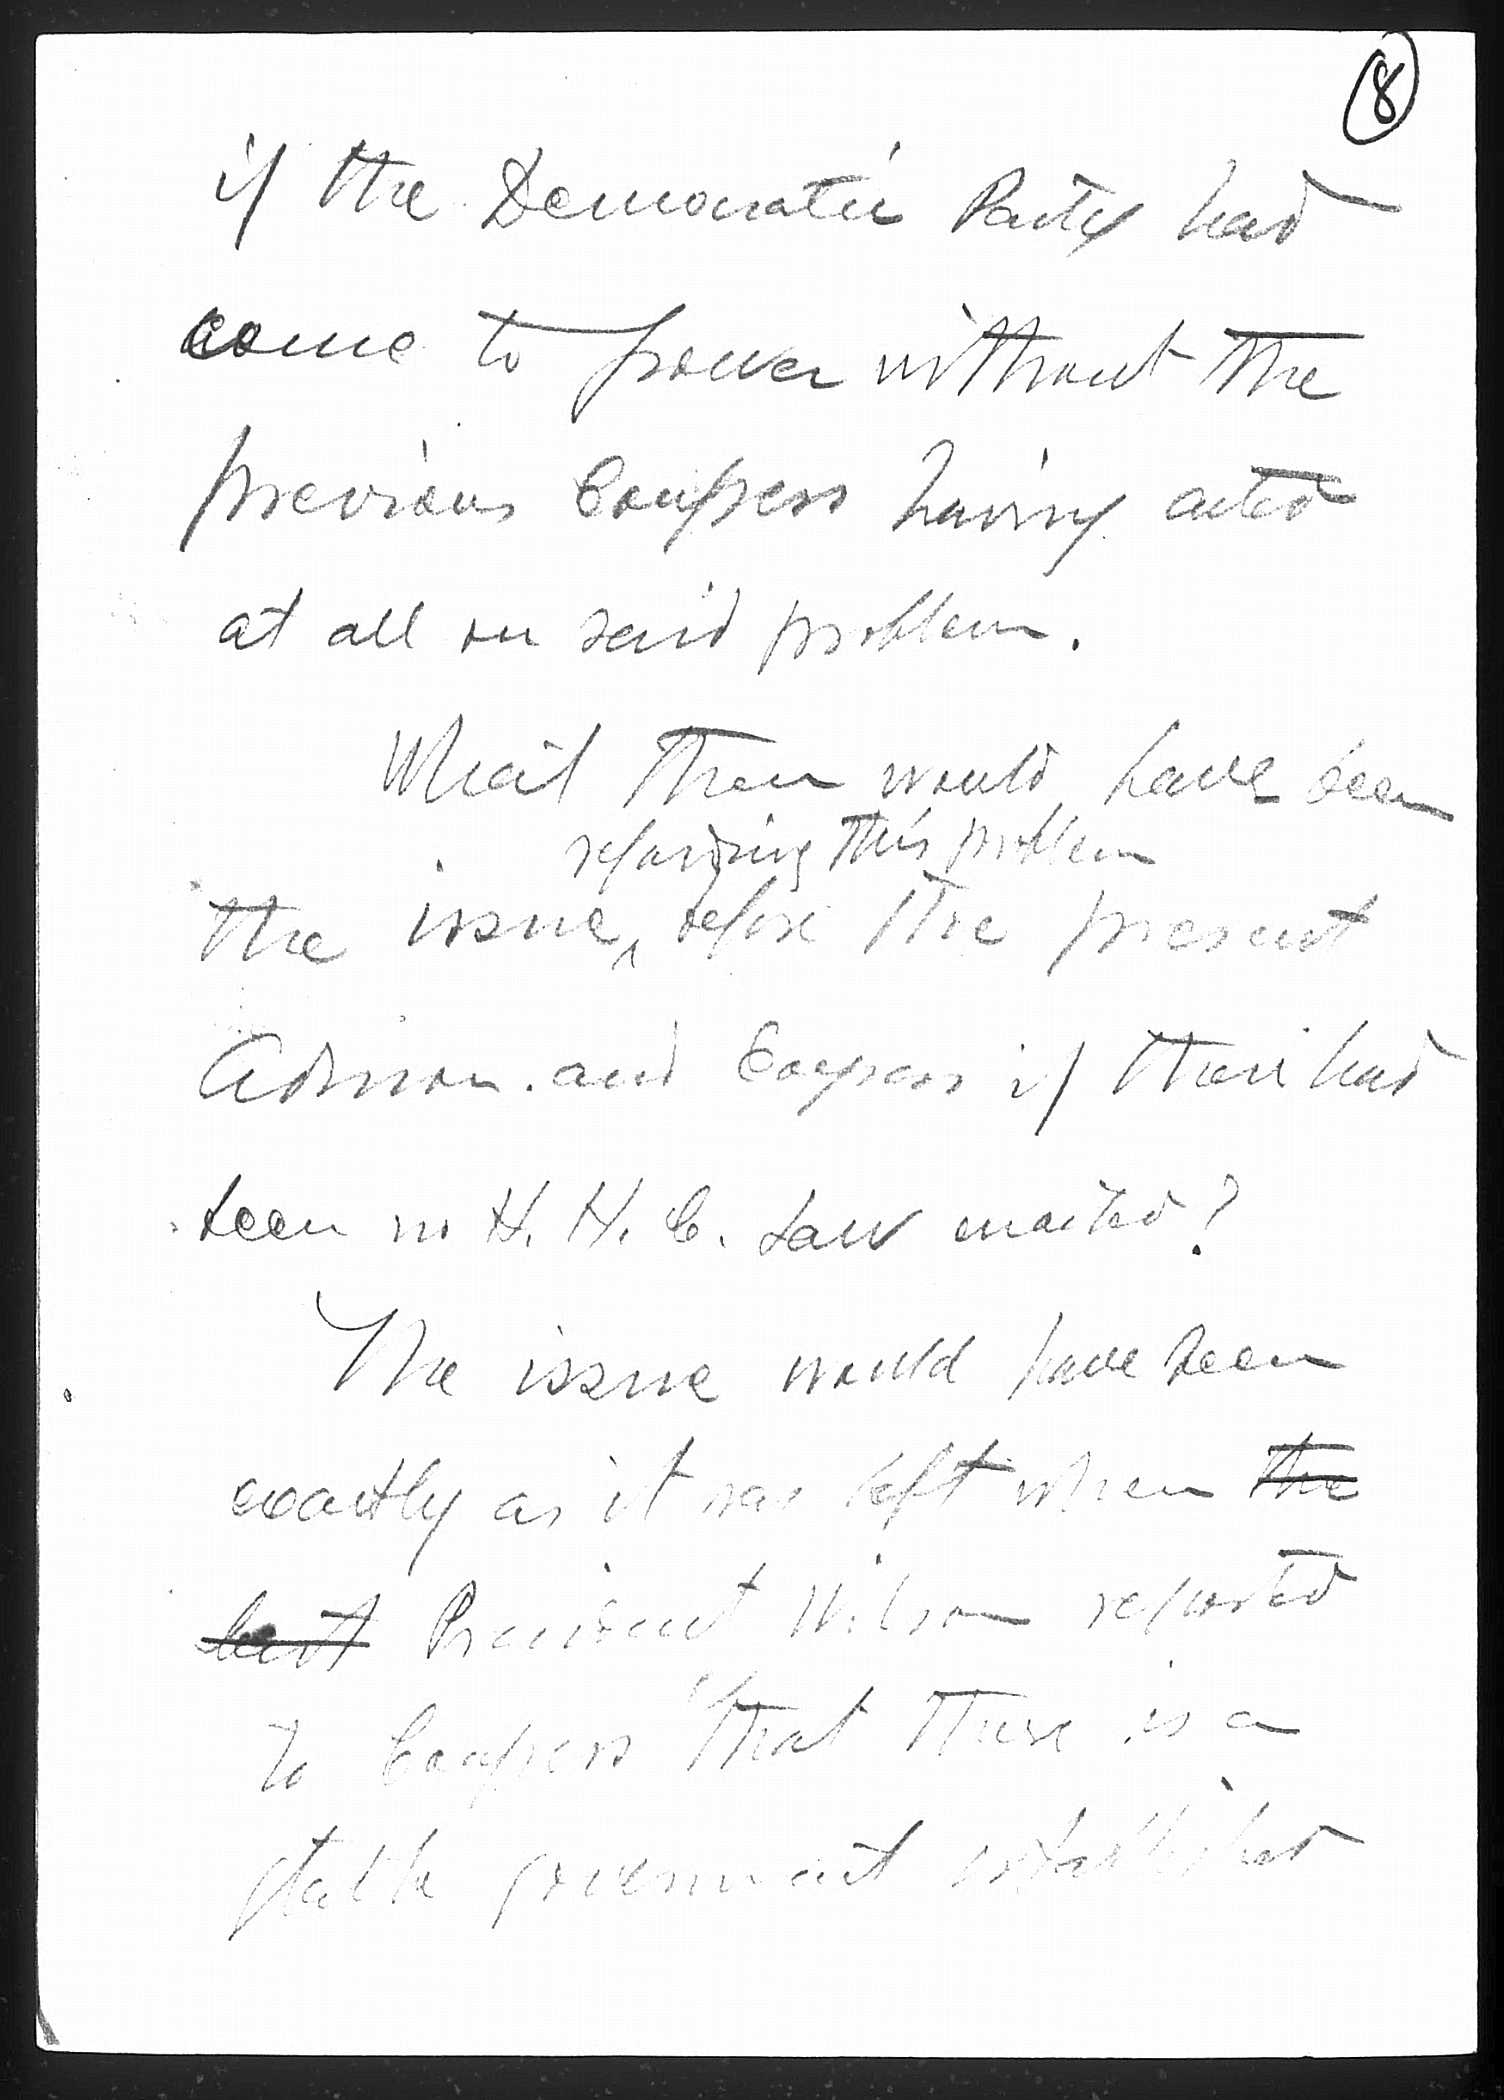 8
if the Democratic Party had
come to power without the
previous Congress having acted
at all on said problem.
What then would have been
regarding this problem
the issue, before the present
Admon. and Congress if there had
been no H. H. C. Law enacted?
The issue would have been
exactly as it was left when the
last President Wilson reported
to Congress "that there is a
stable government established